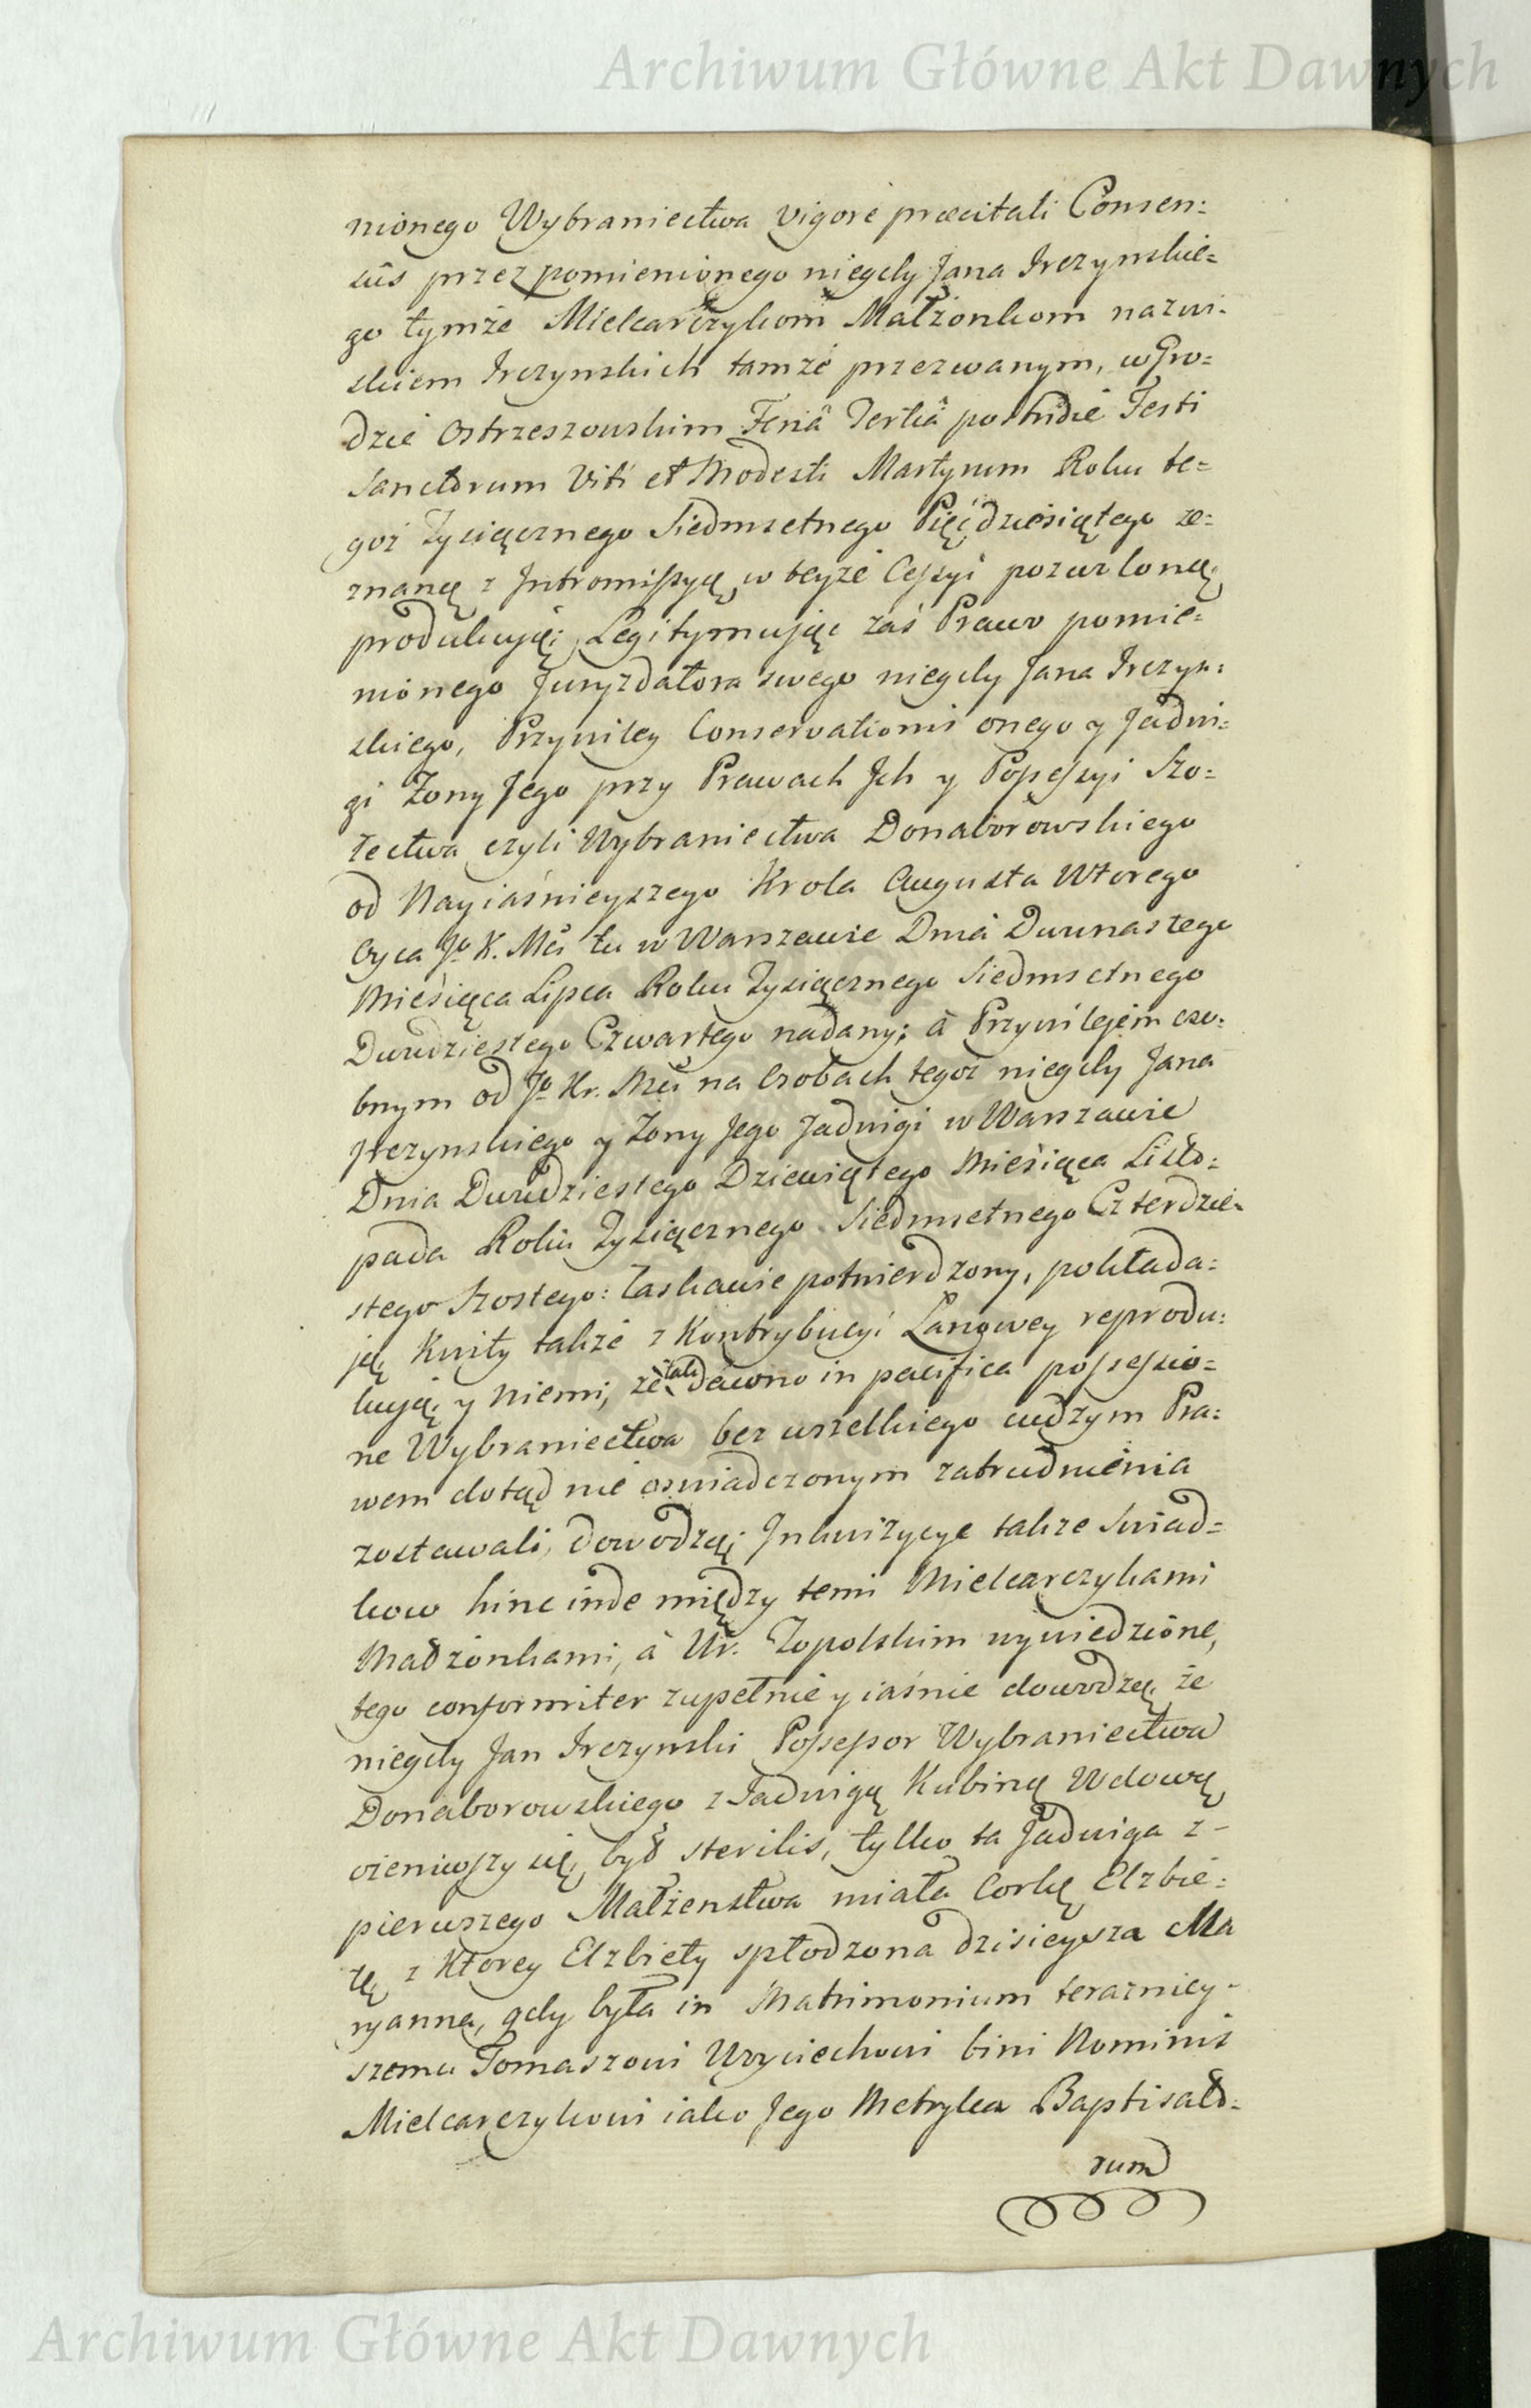 Archiwum Główne Akt Dawnych
nionego Wybraniectwa vigore præcitati Consen:
sûs przez pomienionego niegdy Jana Irczynskie=
go tymże Mielcarczykom Małżonkom nazwi-
skiem Irczynskich tamże przezwanym, w Gro=
dzie Ostrzeszowskim Feriâ Tertiâ postridie Festi
Sanctorum Viti et Modesti Martyrum Roku te=
goż Tysiącznego Siedmsetnego Pięćdziesiątego ze=
znaną z Intromissyą w teyże Cessyi pozwoloną,
produkują; Legitymując zaś Prawo pomie=
nionego Juryzdatora swego niegdy Jana Irczyn:
skiego, Przywiley Conservationis onego y Jadwi=
gi Żony Jego przy Prawach Ich y Possessyi Szo=
łectwa czyli Wybraniectwa Donaborowskiego
od Nayiaśnieyszego Krola Augusta Wtorego
Oyca Jo K. Mci tu w Warszawie Dnia Dwunastego
Miesiąca Lipca Roku Tysiącznego Siedmsetnego
Dwudziestego Czwartego nadany; à Przywilejem oso-
bnym od Jo Kr. Mci na Osobach tegoż niegdy Jana
Irczynskiego y Żony Jego Jadwigi w Warszawie
Dnia Dwudziestego Dziewiątego Miesiąca Listo=
pada Roku Tysiącznego Siedmsetnego Czterdzie-
stego Szostego: łaskawie potwierdzony, pokłada=
ją, Kwity także z Kontrybucyi Łanowey reprodu:
kują y niemi, że tak dawno in pacifica possessio=
ne Wybraniectwa bez wszelkiego cudzym Pra:
wem dotąd nie oswiadczonym zatrudnienia
zostawali, dowodzą; Inkwizycye także Swiad=
kow hinc inde między temi Mielcarczykami
Małżonkami, à Ur. Topolskim wywiedzione,
tego conformiter zupełnie y iaśnie dowodzą, że
niegdy Jan Irczynski Possessor Wybraniectwa
Donaborowskiego z Jadwigą Kubiną Wdową
ożeniwszy się, był sterilis, tylko ta Jadwiga z-
pierwszego Małżenstwa miała Corkę Elzbie:
tę z ktorey Elzbiety spłodzona dzisieysza Ma
ryanna, gdy była in Matrimonium terazniey-
szemu Tomaszowi Woyciechowi bini Nominis
Mielcarczykowi iako Jego Metryka Baptisato-
rum
Archiwum Główne Akt Dawnych